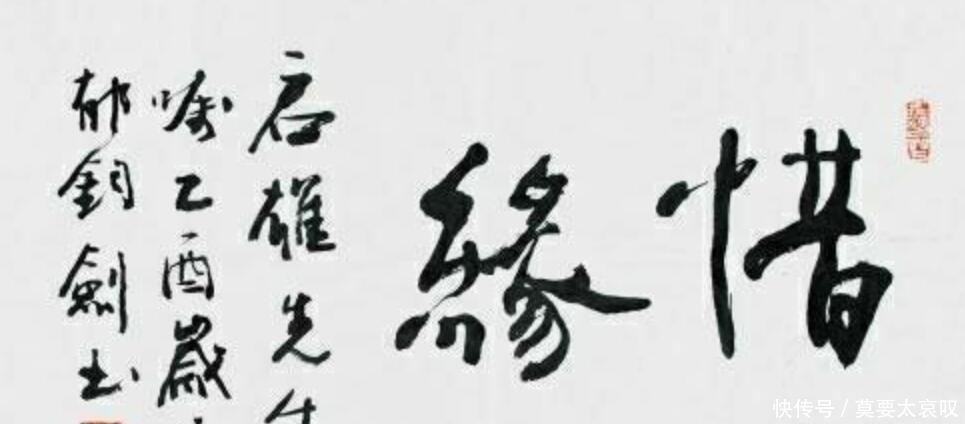 惜緣
启雄先生
嘱乙酉岁
郁钧剑书
快传号/莫要太哀叹